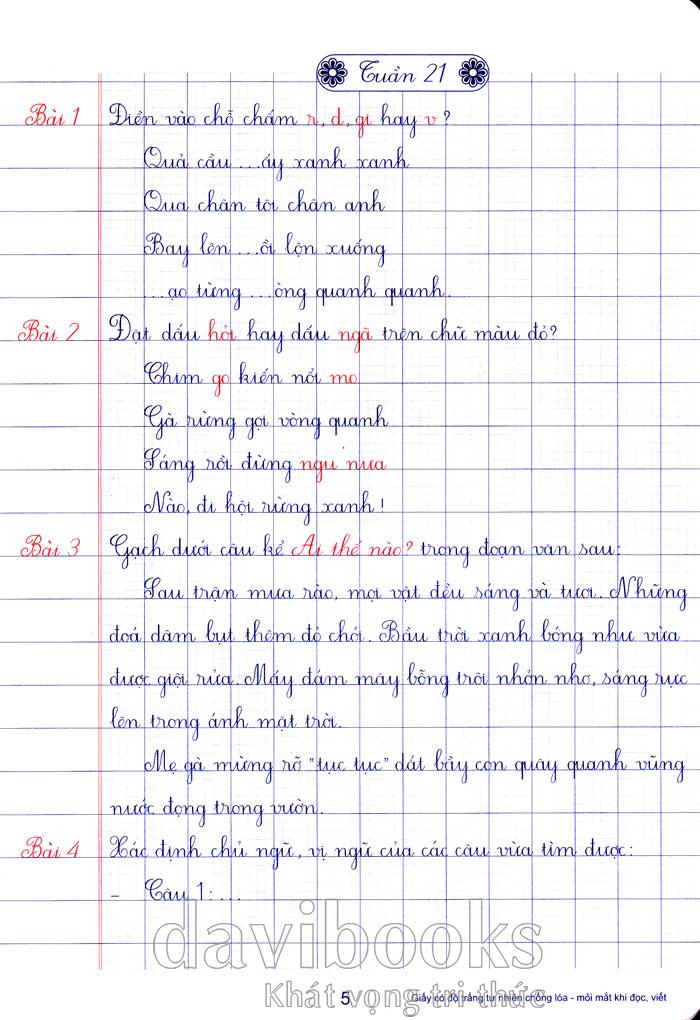 Tuần 21
Bài 1 Điền vào chỗ chấm r, d, gi hay v?
Quả cầu ...ấy xanh xanh
Qua chân tôi chân anh
Bay lên ...ồi lộn xuống
...ao từng ...òng quanh quanh.
Bài 2 Đặt dấu hỏi hay dấu ngã trên chữ màu đỏ?
Chim go kiến nổi mo
Gà rừng gọi vòng quanh
Sáng rồi đừng ngu nưa
Nào, đi hội rừng xanh!
Bài 3 Gạch dưới câu kể Ai thế nào? trong đoạn văn sau:
Sau trận mưa rào, mọi vật đều sáng và tươi. Những
đoá dâm bụt thêm đỏ chói. Bầu trời xanh bóng như vừa
được giội rửa. Mấy đám mây bỗng trôi nhởn nhơ, sáng rực
lên trong ánh mặt trời.
Mẹ gà mừng rỡ "tục tục" dắt bầy con quây quanh vũng
nước đọng trong vườn.
Bài 4 Xác định chủ ngữ, vị ngữ của các câu vừa tìm được:
- Câu 1: ...
davibooks
Khát vọng tri thức
5 Giấy có độ trắng tự nhiên chống lóa - mỏi mắt khi đọc, viết